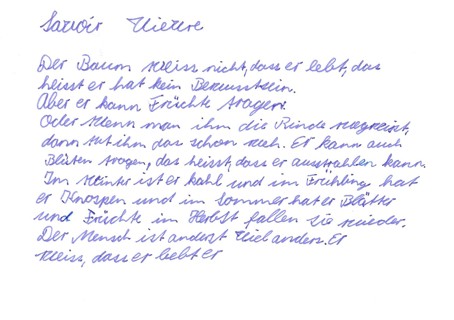 Savoir Vivre
Der Baum weiss nicht, dass er lebt, das
heisst er hat kein Bewusstsein.
Aber er kann Früchte tragen.
Oder wenn man ihm die Rinde wegreisst,
dann tut ihm das schon weh. Er kann auch
Blüten tragen, das heisst, dass er ausstrahlen kann.
Im Winter ist er kahl und im Frühling hat
er Knospen und im Sommer hat er Blätter
und Früchte im Herbst fallen sie wieder.
Der Mensch ist anderst viel anders. Er
weiss, dass er lebt er